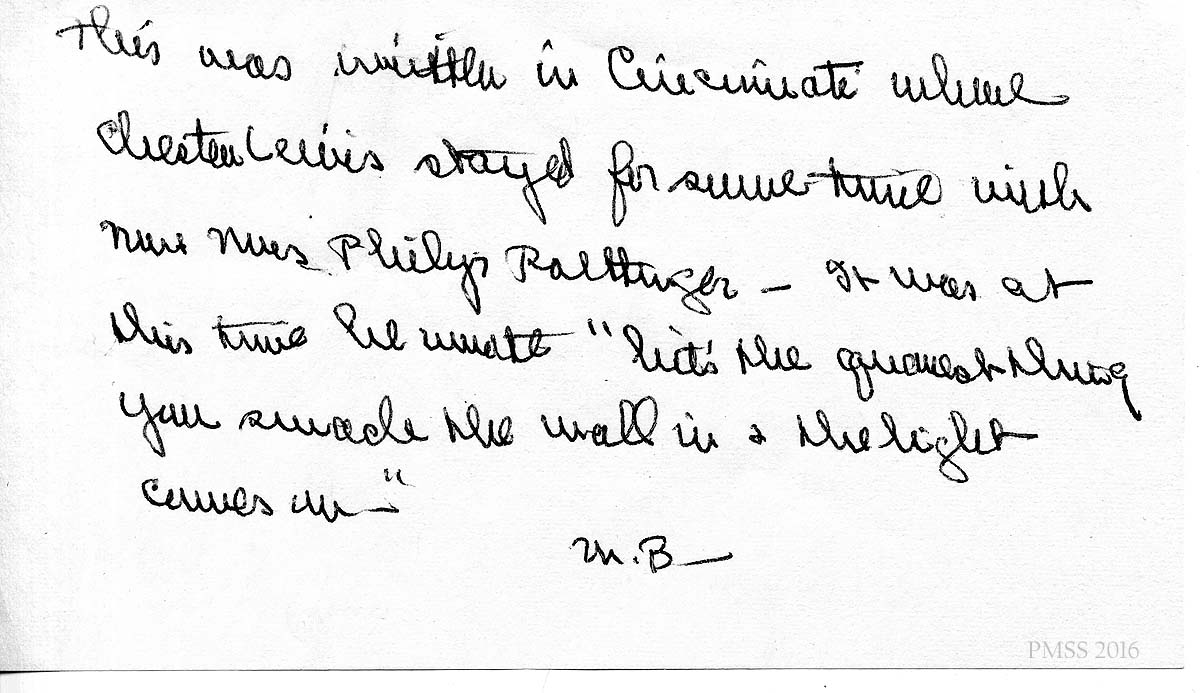 This was written in Cincinnati where
Chester Lewis stayed for sometime with
Mrs Philips – It was at
this time he wrote "hit's the quarest thing
you smack the wall in & the light
comes on –"
M.B –
PMSS 2016